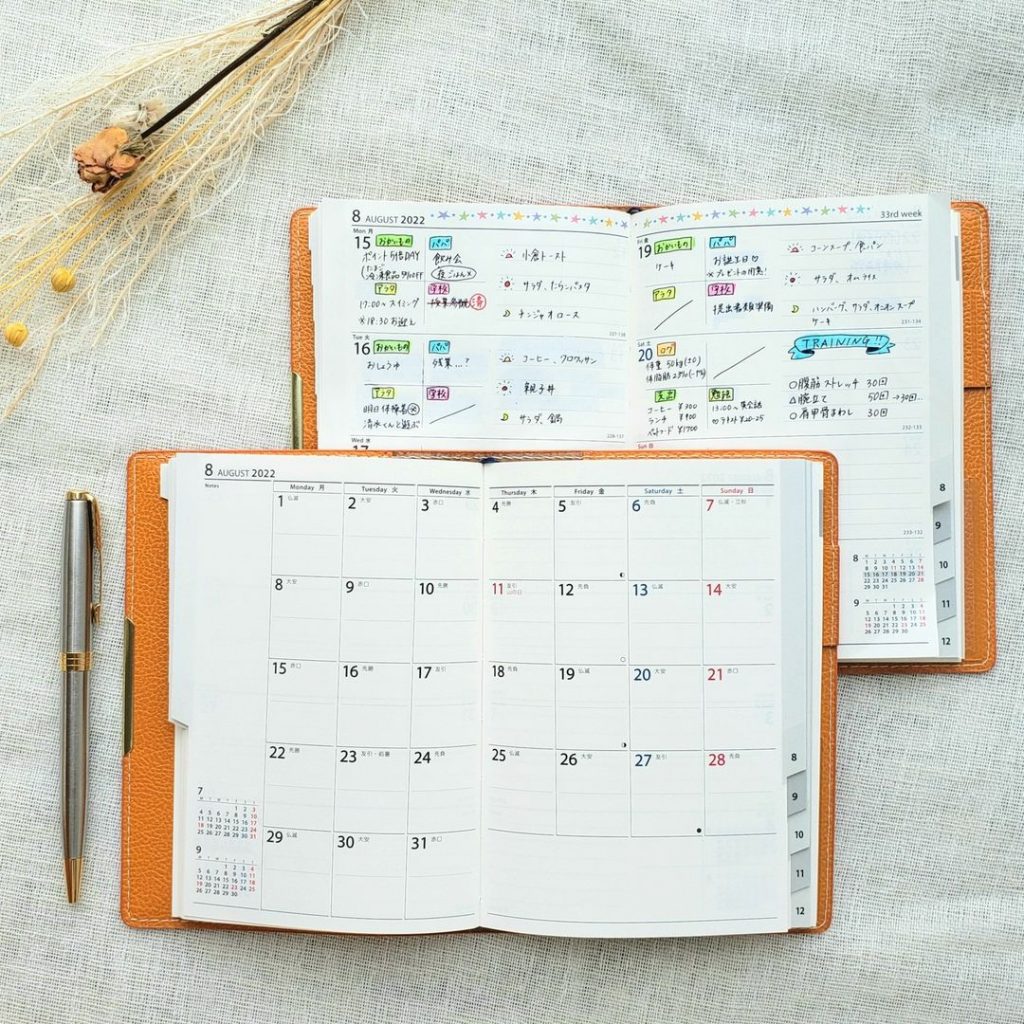 8 AUGUST 2022
33rd week
Mon 月
15
おかいもの
パパ
ポイント5倍DAY
飲み会
夜ごはん×
17:00〜スイミング
※18:30お迎え
学校
済
小倉トースト
サラダ、たらこパスタ
チンジャオロース
227-138
Tue 火
16
おかいもの
パパ
おしょうゆ
残業…?
学校
明日体操着
清水くんと遊ぶ
コーヒー、クロワッサン
親子丼
サラダ、鍋
228-137
Wed 水
17
Fri 金
19
おかいもの
パパ
ケーキ
お誕生日♡
※プレゼントの用意!
学校
提出書類準備
コーンスープ、食パン
サラダ、オムライス
ハンバーグ、サラダ、オニオンスープ
ケーキ
231-134
Sat 土
20
ログ
体重 50kg(±0)
コーヒー ¥300
ランチ ¥900
ペットフード ¥1700
13:00〜英会話
テキストP20-25
TRAINING!!
○腹筋ストレッチ 30回
△腕立て 50回→30回…
○肩甲骨まわし 30回
232-133
Sun 日
233-132
8
9
10
11
12
8
9
8 AUGUST 2022
Notes
Monday 月
Tuesday 火
Wednesday 水
Thursday 木
Friday 金
Saturday 土
Sunday 日
1 仏滅
2 大安
3 赤口
4 先勝
5 友引
6 先負
7 仏滅・立秋
8 大安
9 赤口
10 先勝
11 友引
山の日
12 先負
13 仏滅
14 大安
15 赤口
16 先勝
17 友引
18 先負
19 仏滅
20 大安
21 赤口
22 先勝
23 友引・処暑
24 先負
25 仏滅
26 大安
27 友引
28 先負
29 仏滅
30 大安
31 赤口
7
9
8
9
10
11
12